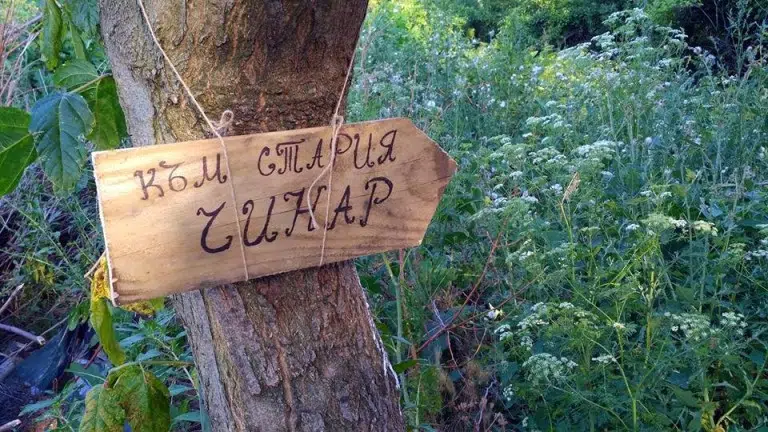 КЪМ СТАРИЯ
ЧИНАР